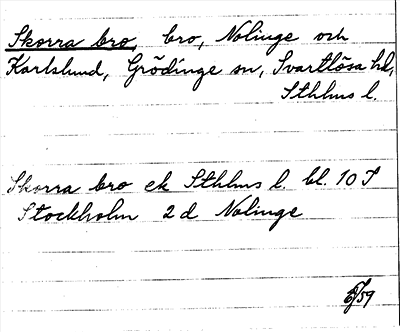 Skorra bro, bro, Nolinge och
Karlslund, Grödinge sn, Svartlösa hd,
Sthlms l.
Skorra bro ek Sthlms l. bl. 10 S
Stockholm 2 d Nolinge